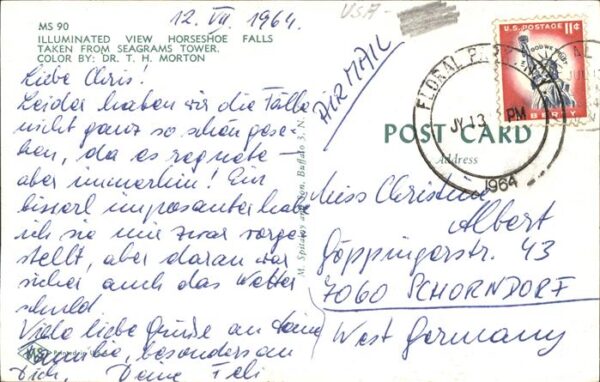 12. VII. 1964.
USA
MS 90
ILLUMINATED VIEW HORSESHOE FALLS
TAKEN FROM SEAGRAMS TOWER.
COLOR BY: DR. T. H. MORTON
Liebe Chris!
Leider haben wir die Fälle
nicht ganz so schön gese-
hen, da es regnete –
aber immerhin! Ein
bisserl imposanter habe
ich sie mir zwar vorge-
stellt, aber daran war
sicher auch das Wetter
schuld.
Viele liebe Grüße an Deine
Familie, besonders an
Dich, Deine Feli
MS
AIRMAIL
POST CARD
Address
M. Spitalny Buffalo 5, N.
U.S. POSTAGE 11¢
IN GOD WE TRUST
LIBERTY
FLORAL PARK
JY 13 PM
1964
Miss Christine
Albert
Göppingerstr. 43
7060 SCHORNDORF
West Germany